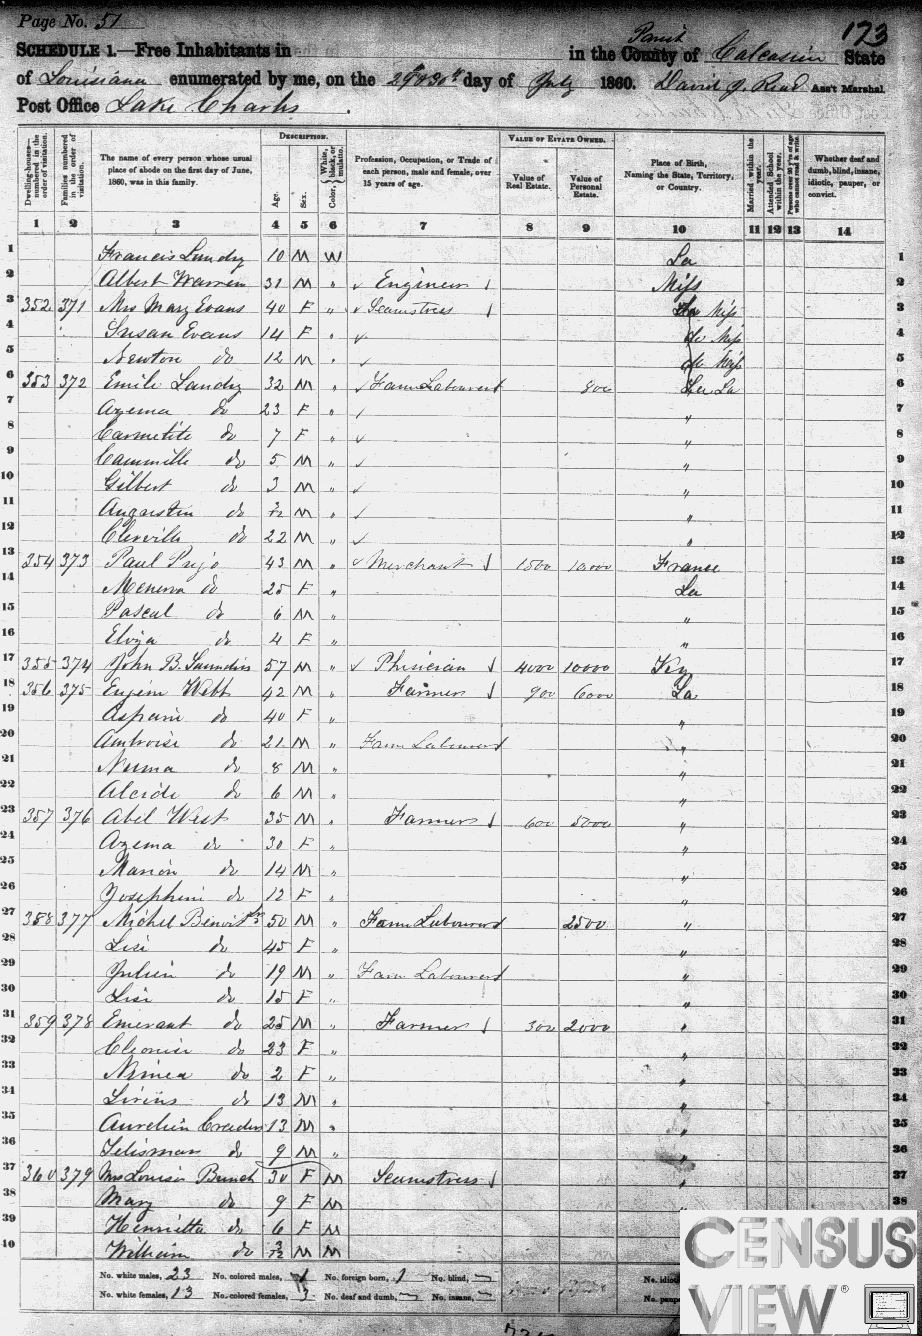 Page No. 51
173
SCHEDULE 1.—Free Inhabitants in in the County of Parish Calcasieu State
of Louisiana enumerated by me, on the 29 & 30th day of July 1860. David J. Read Ass't Marshal.
Post Office Lake Charles .
Dwelling-houses—numbered in the order of visitation.
Families numbered in the order of visitation.
The name of every person whose usual place of abode on the first day of June, 1860, was in this family.
DESCRIPTION.
Age.
Sex.
Color, White, black, or mulatto.
Profession, Occupation, or Trade of each person, male and female, over 15 years of age.
VALUE OF ESTATE OWNED.
Value of Real Estate.
Value of Personal Estate.
Place of Birth, Naming the State, Territory, or Country.
Married within the year.
Attended School within the year.
Persons over 20 y'rs of age who cannot read & write.
Whether deaf and dumb, blind, insane, idiotic, pauper, or convict.
1 2 3 4 5 6 7 8 9 10 11 12 13 14
1 Francis Landry 10 M W La 1
2 Albert Warren 31 M " Engineer Miss 2
3 352 371 Mrs Mary Evans 40 F " Seamstress Miss 3
4 Susan Evans 14 F " do Miss 4
5 Newton do 12 M " do Miss 5
6 353 372 Emile Landry 32 M " Farm Labourer 800 La La 6
7 Azema do 23 F " " 7
8 Carmelite do 7 F " " 8
9 Cammille do 5 M " " 9
10 Gilbert do 3 M " " 10
11 Augustin do M " " 11
12 Cleville do 22 M " " 12
13 354 373 Paul Pujo 43 M " Merchant 1500 10000 France 13
14 Menerva do 25 F " La 14
15 Pascal do 6 M " " 15
16 Eloiza do 4 F " " 16
17 355 374 John B. Saunders 57 M " Phisician 4000 10000 Key 17
18 356 375 Eugene Webb 42 M " Farmer 900 6000 La 18
19 Aspasie do 40 F " " 19
20 Ambroise do 21 M " Farm Labourer " 20
21 Numa do 8 M " " 21
22 Alcide do 6 M " " 22
23 357 376 Abel West 35 M " Farmer 600 5000 " 23
24 Azema do 30 F " " 24
25 Marion do 14 M " " 25
26 Josephine do 12 F " " 26
27 358 377 Michel Benoit 50 M " Farm Labourer 2500 " 27
28 Lise do 45 F " " 28
29 Julien do 19 M " Farm Labourer " 29
30 Lise do 15 F " " 30
31 359 378 Emerant do 25 M " Farmer 300 2000 " 31
32 Cleonise do 23 F " " 32
33 Ninea do 2 F " " 33
34 do 13 M " " 34
35 Aurelien 13 M " " 35
36 Telisman do 9 M " " 36
37 360 379 Mrs Louisa Bunch 30 F M Seamstress " 37
38 Mary do 9 F M " 38
39 Henrietta do 6 F M
40 William do M M
No. white males, 23 No. colored males, 1 No. foreign born, 1 No. blind, — No. idiotic
No. white females, 13 No. colored females, 3 No. deaf and dumb, — No. insane, — No. paupers
CENSUS
VIEW ®